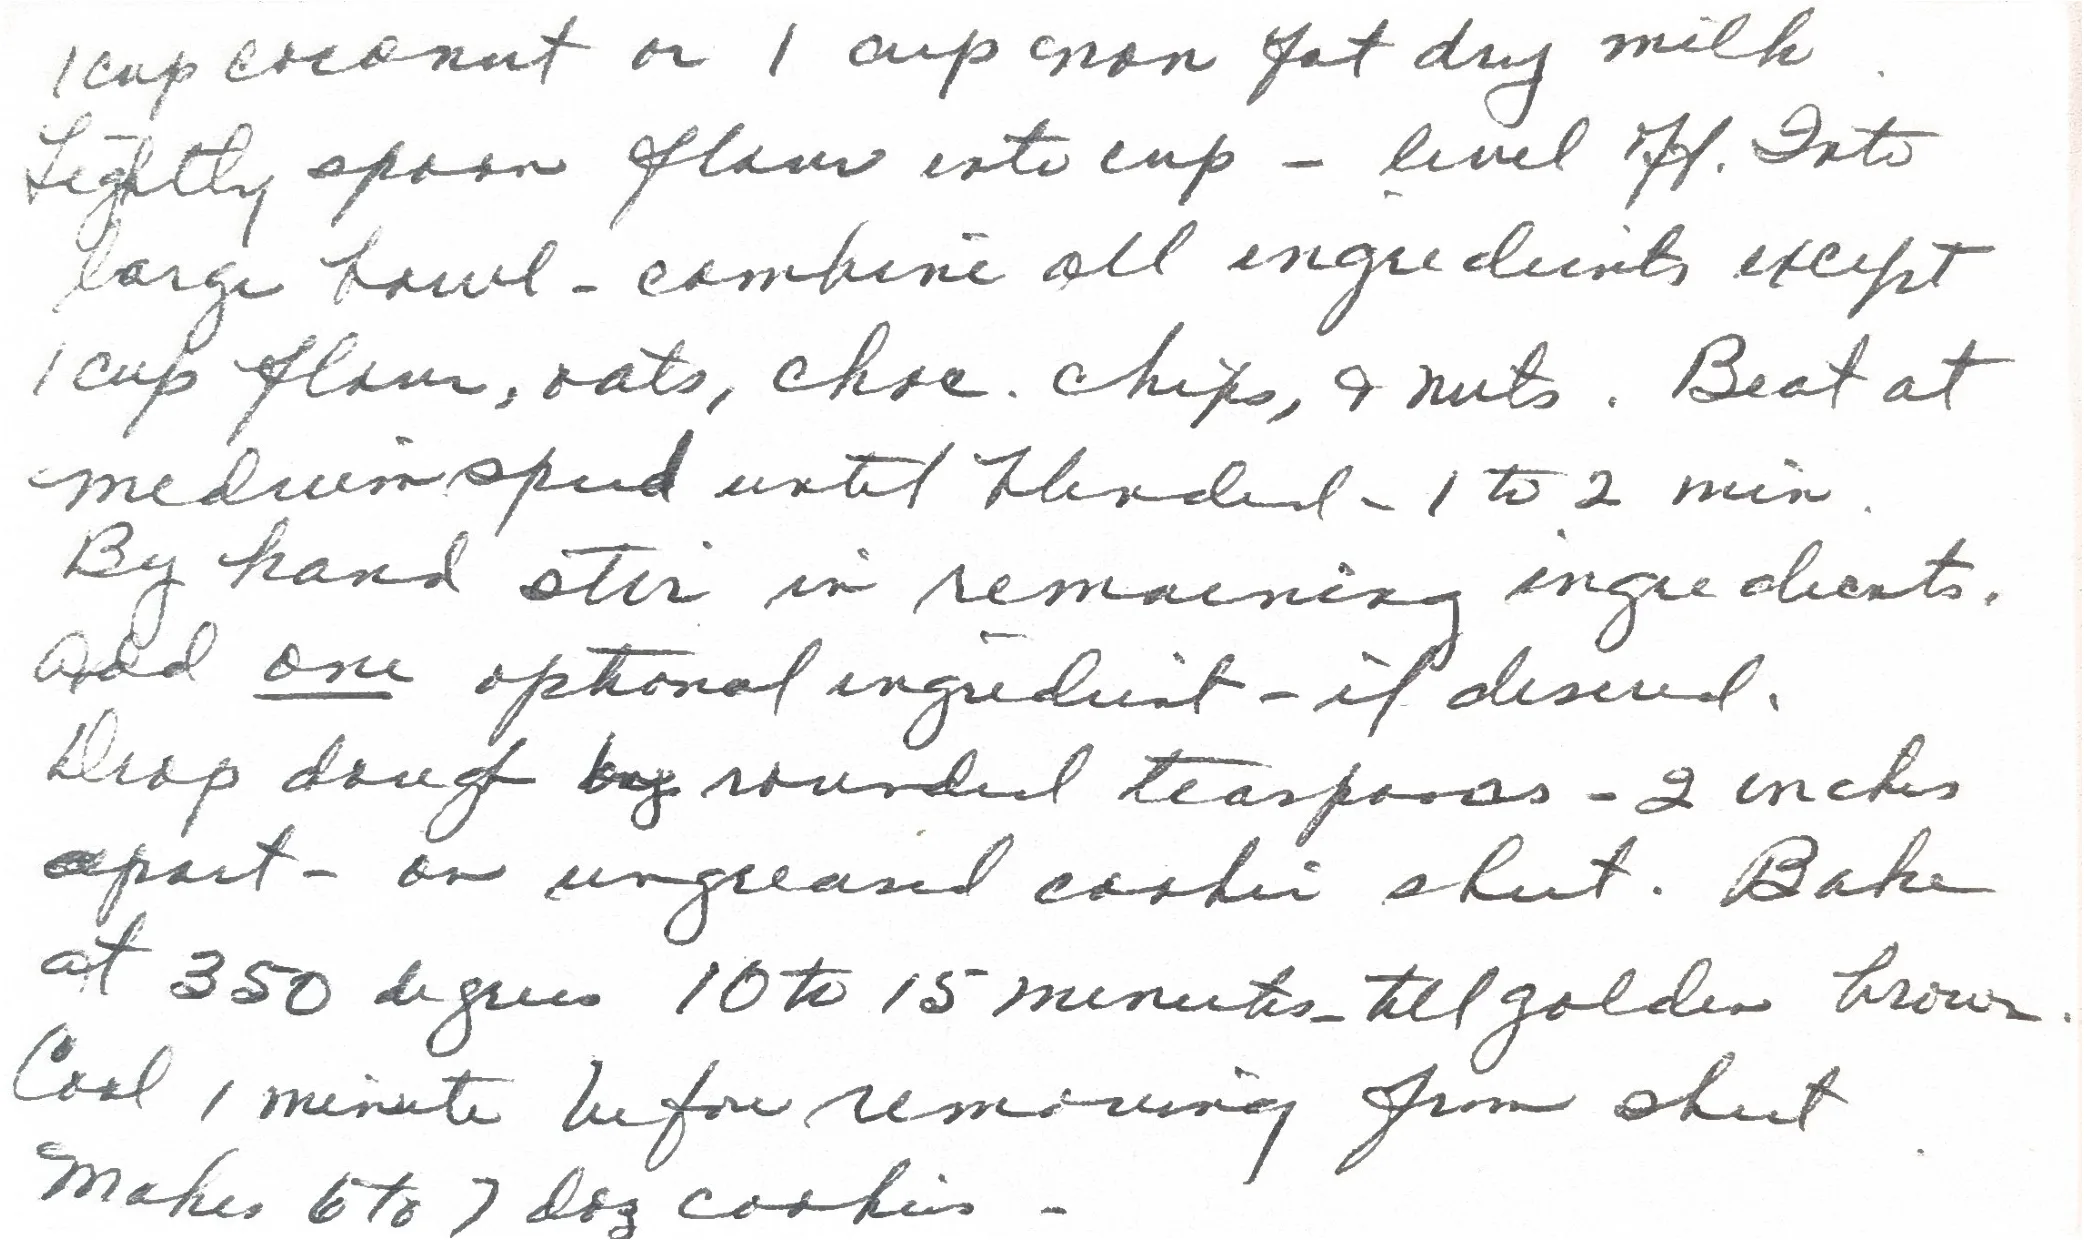 1 cup coconut or 1 cup non fat dry milk.
Lightly spoon flour into cup - level off. Into
large bowl - combine all ingredients except
1 cup flour, oats, choc. chips, & nuts. Beat at
medium speed until blended - 1 to 2 min.
By hand stir in remaining ingredients.
Add one optional ingredient - if desired.
Drop dough by rounded teaspoons - 2 inches
apart - on ungreased cookie sheet. Bake
at 350 degrees 10 to 15 minutes - till golden brown.
Cool 1 minute before removing from sheet.
Makes 6 to 7 doz cookies -